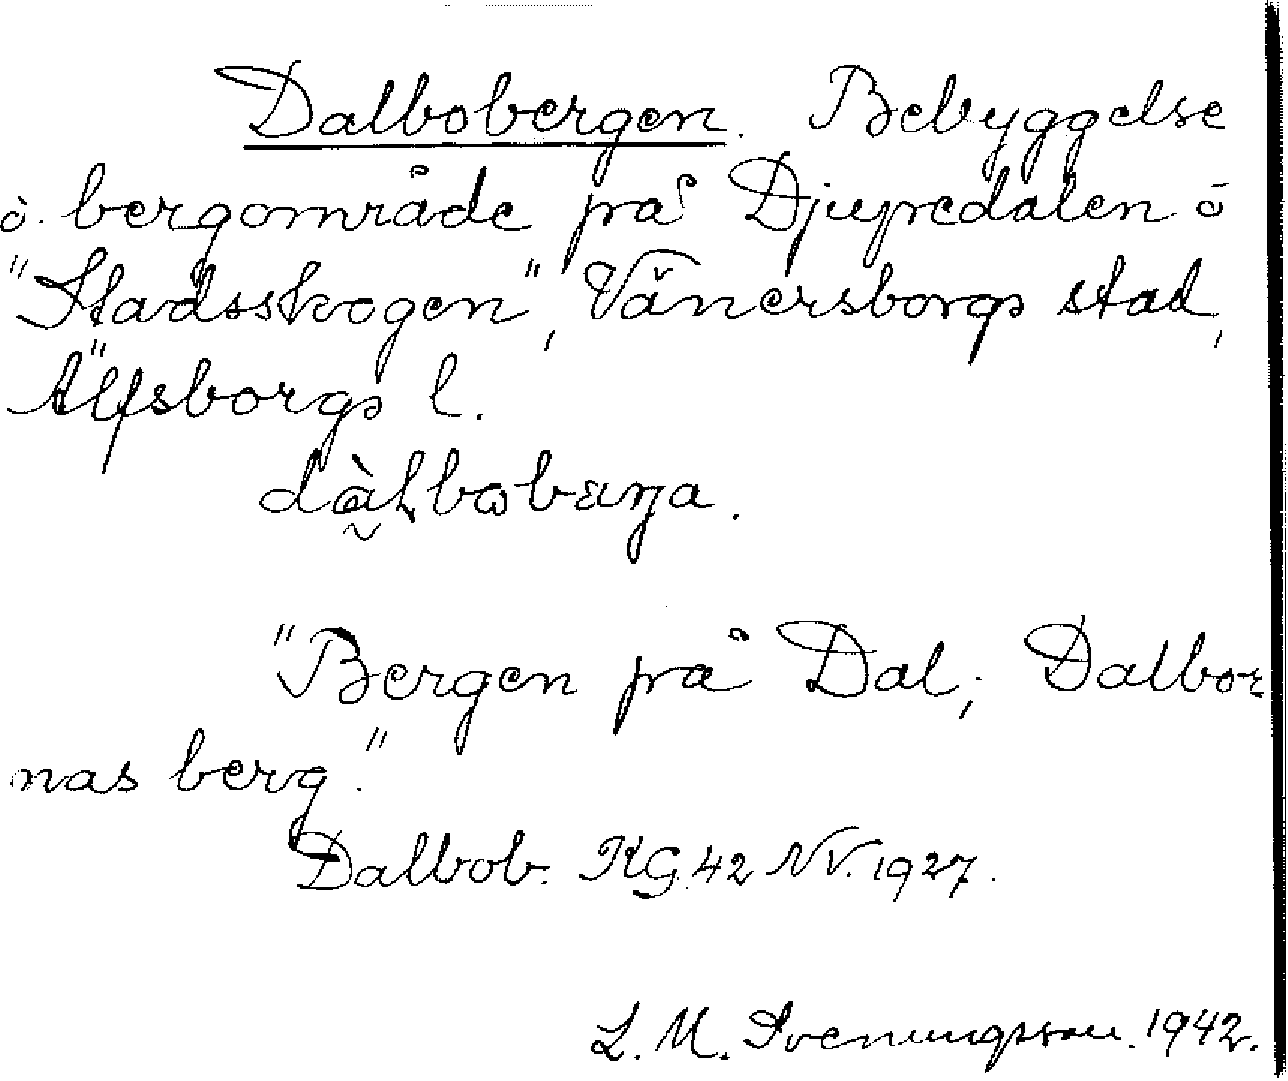 Dalbobergen. Bebyggelse
o. bergområde på Djupedalen o
"Stadsskogen", Vänersborgs stad,
Älfsborgs l.
"Bergen på Dal; Dalbor
nas berg."
Dalbob. KG. 42 NV. 1927.
L. M. Svenungsson. 1942.